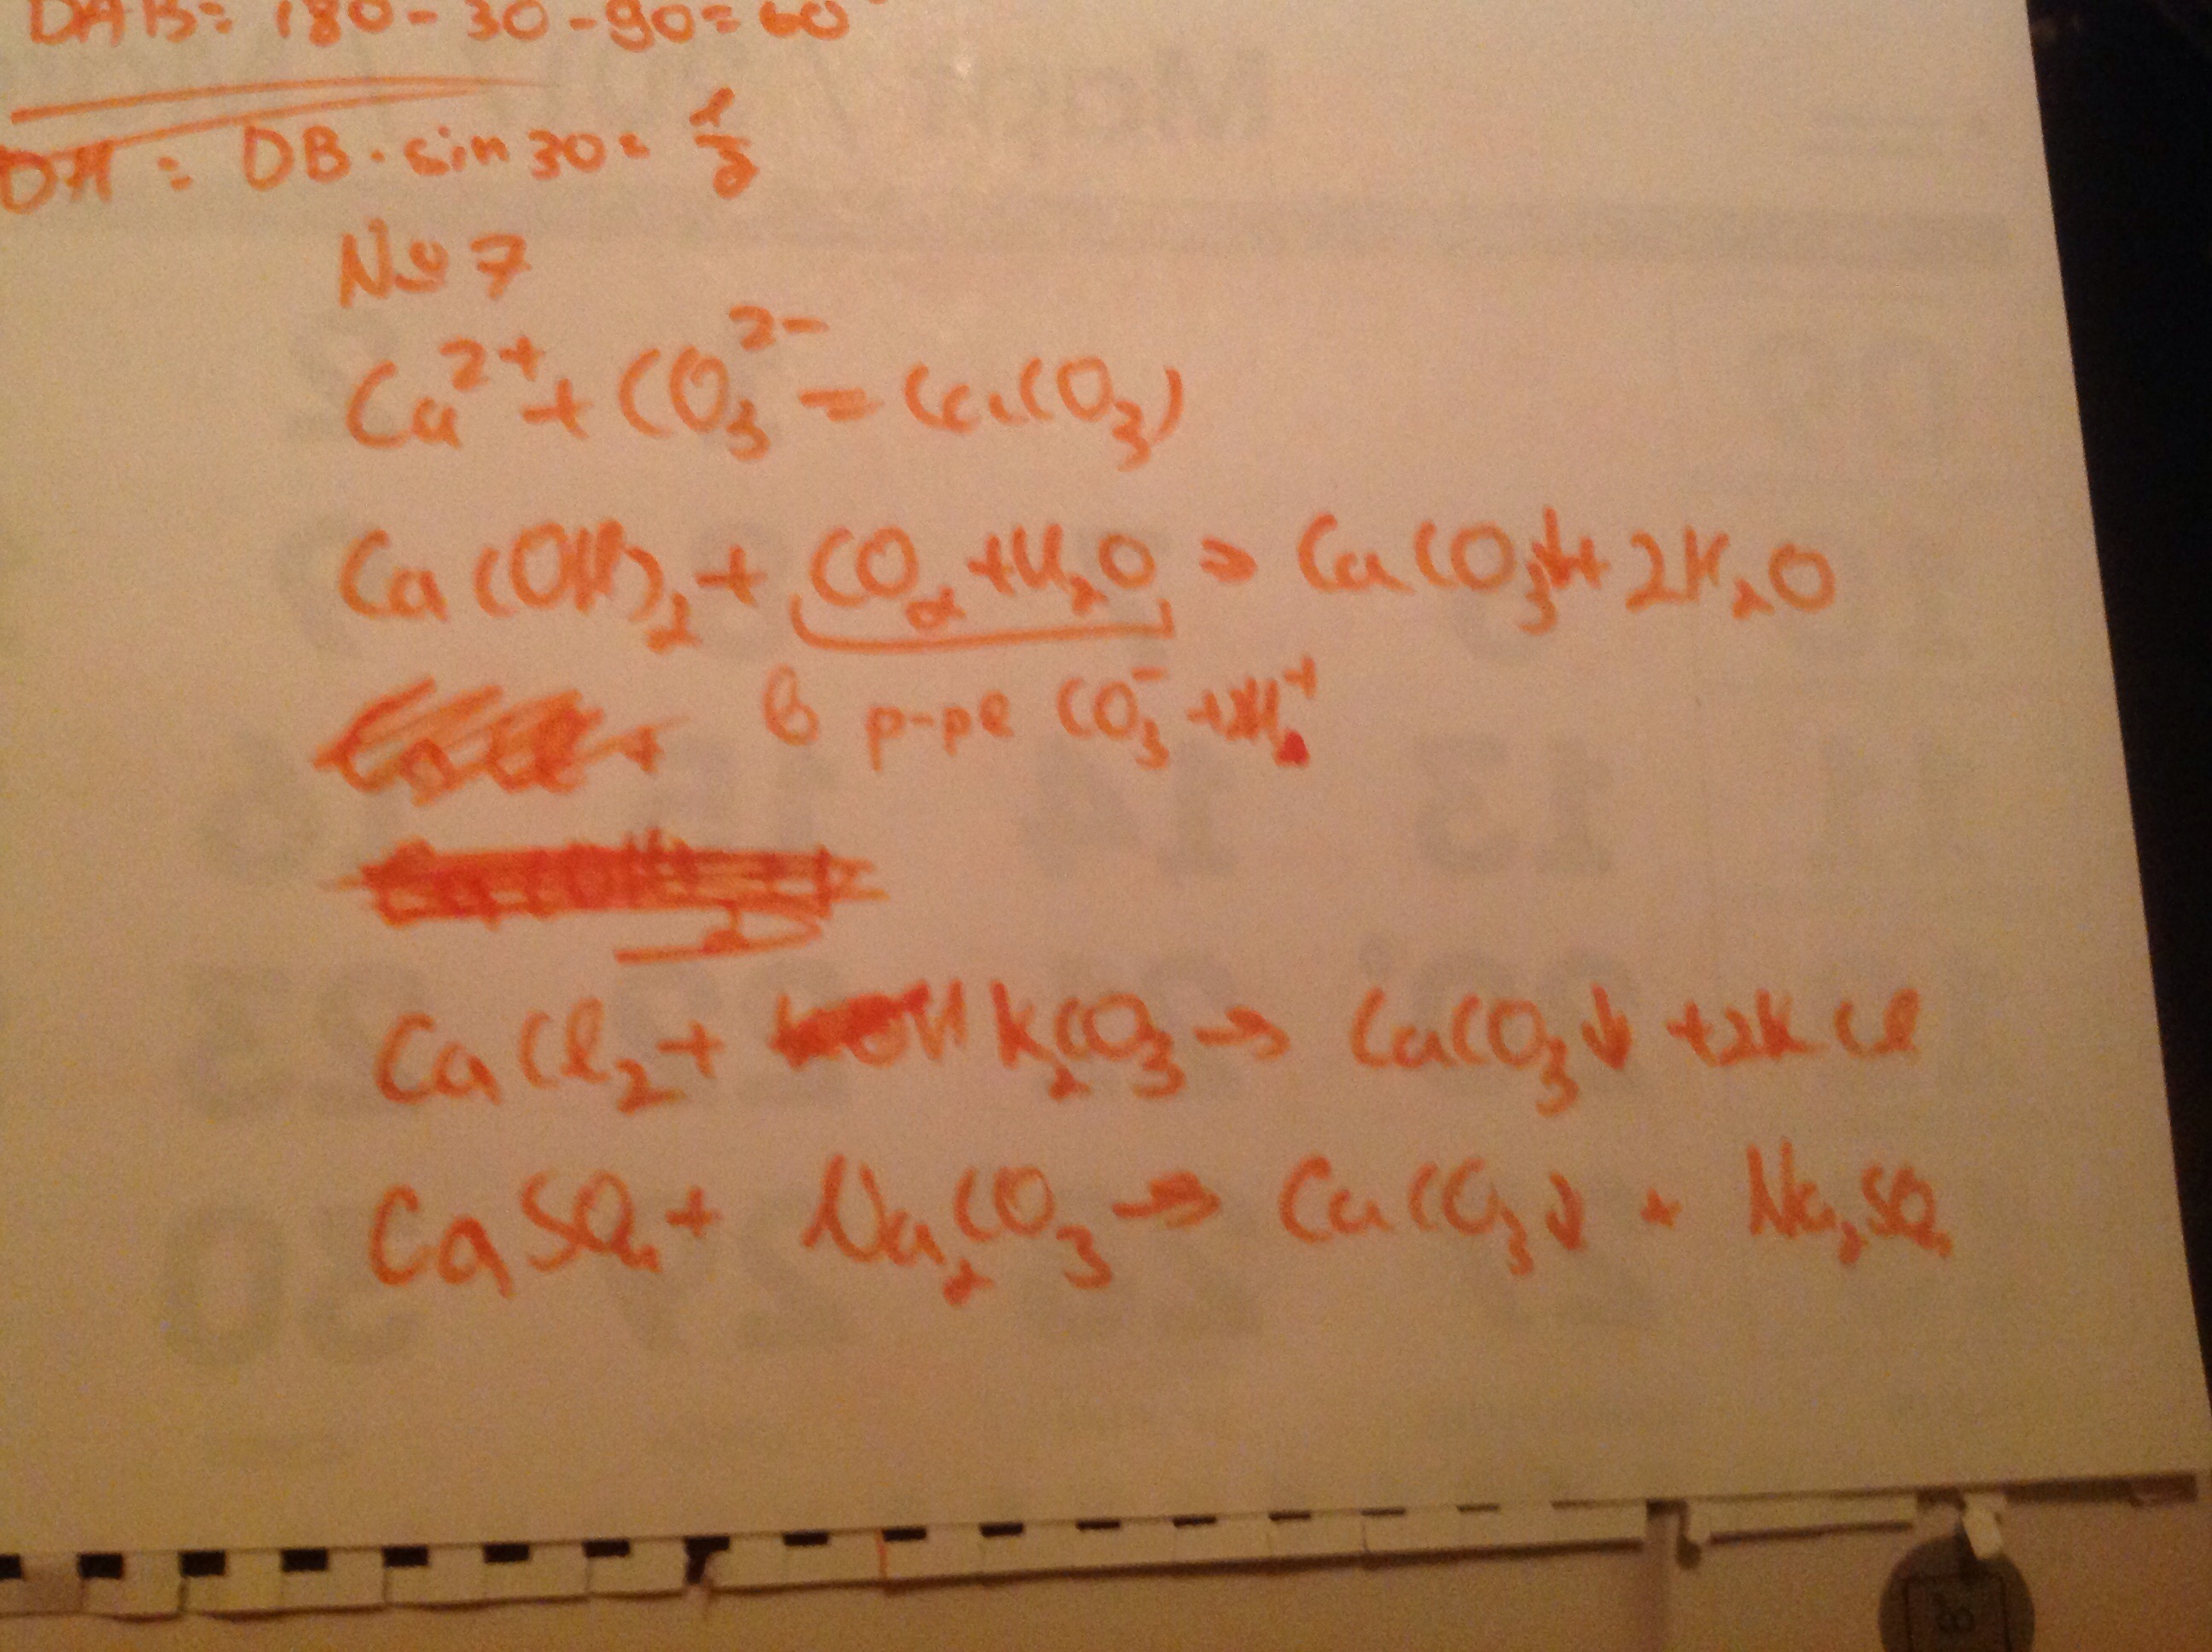 DAB = 180 - 30 - 90 = 60°
DH = DB · sin 30 = 1/2
№ 7
Ca²⁺ + CO₃²⁻ = CaCO₃↓
Ca(OH)₂ + CO₂ + H₂O → CaCO₃↓ + 2H₂O
в р-ре CO₃⁻ + 2H⁺
CaCl₂ + K₂CO₃ → CaCO₃↓ + 2KCl
CaSO₄ + Na₂CO₃ → CaCO₃↓ + Na₂SO₄